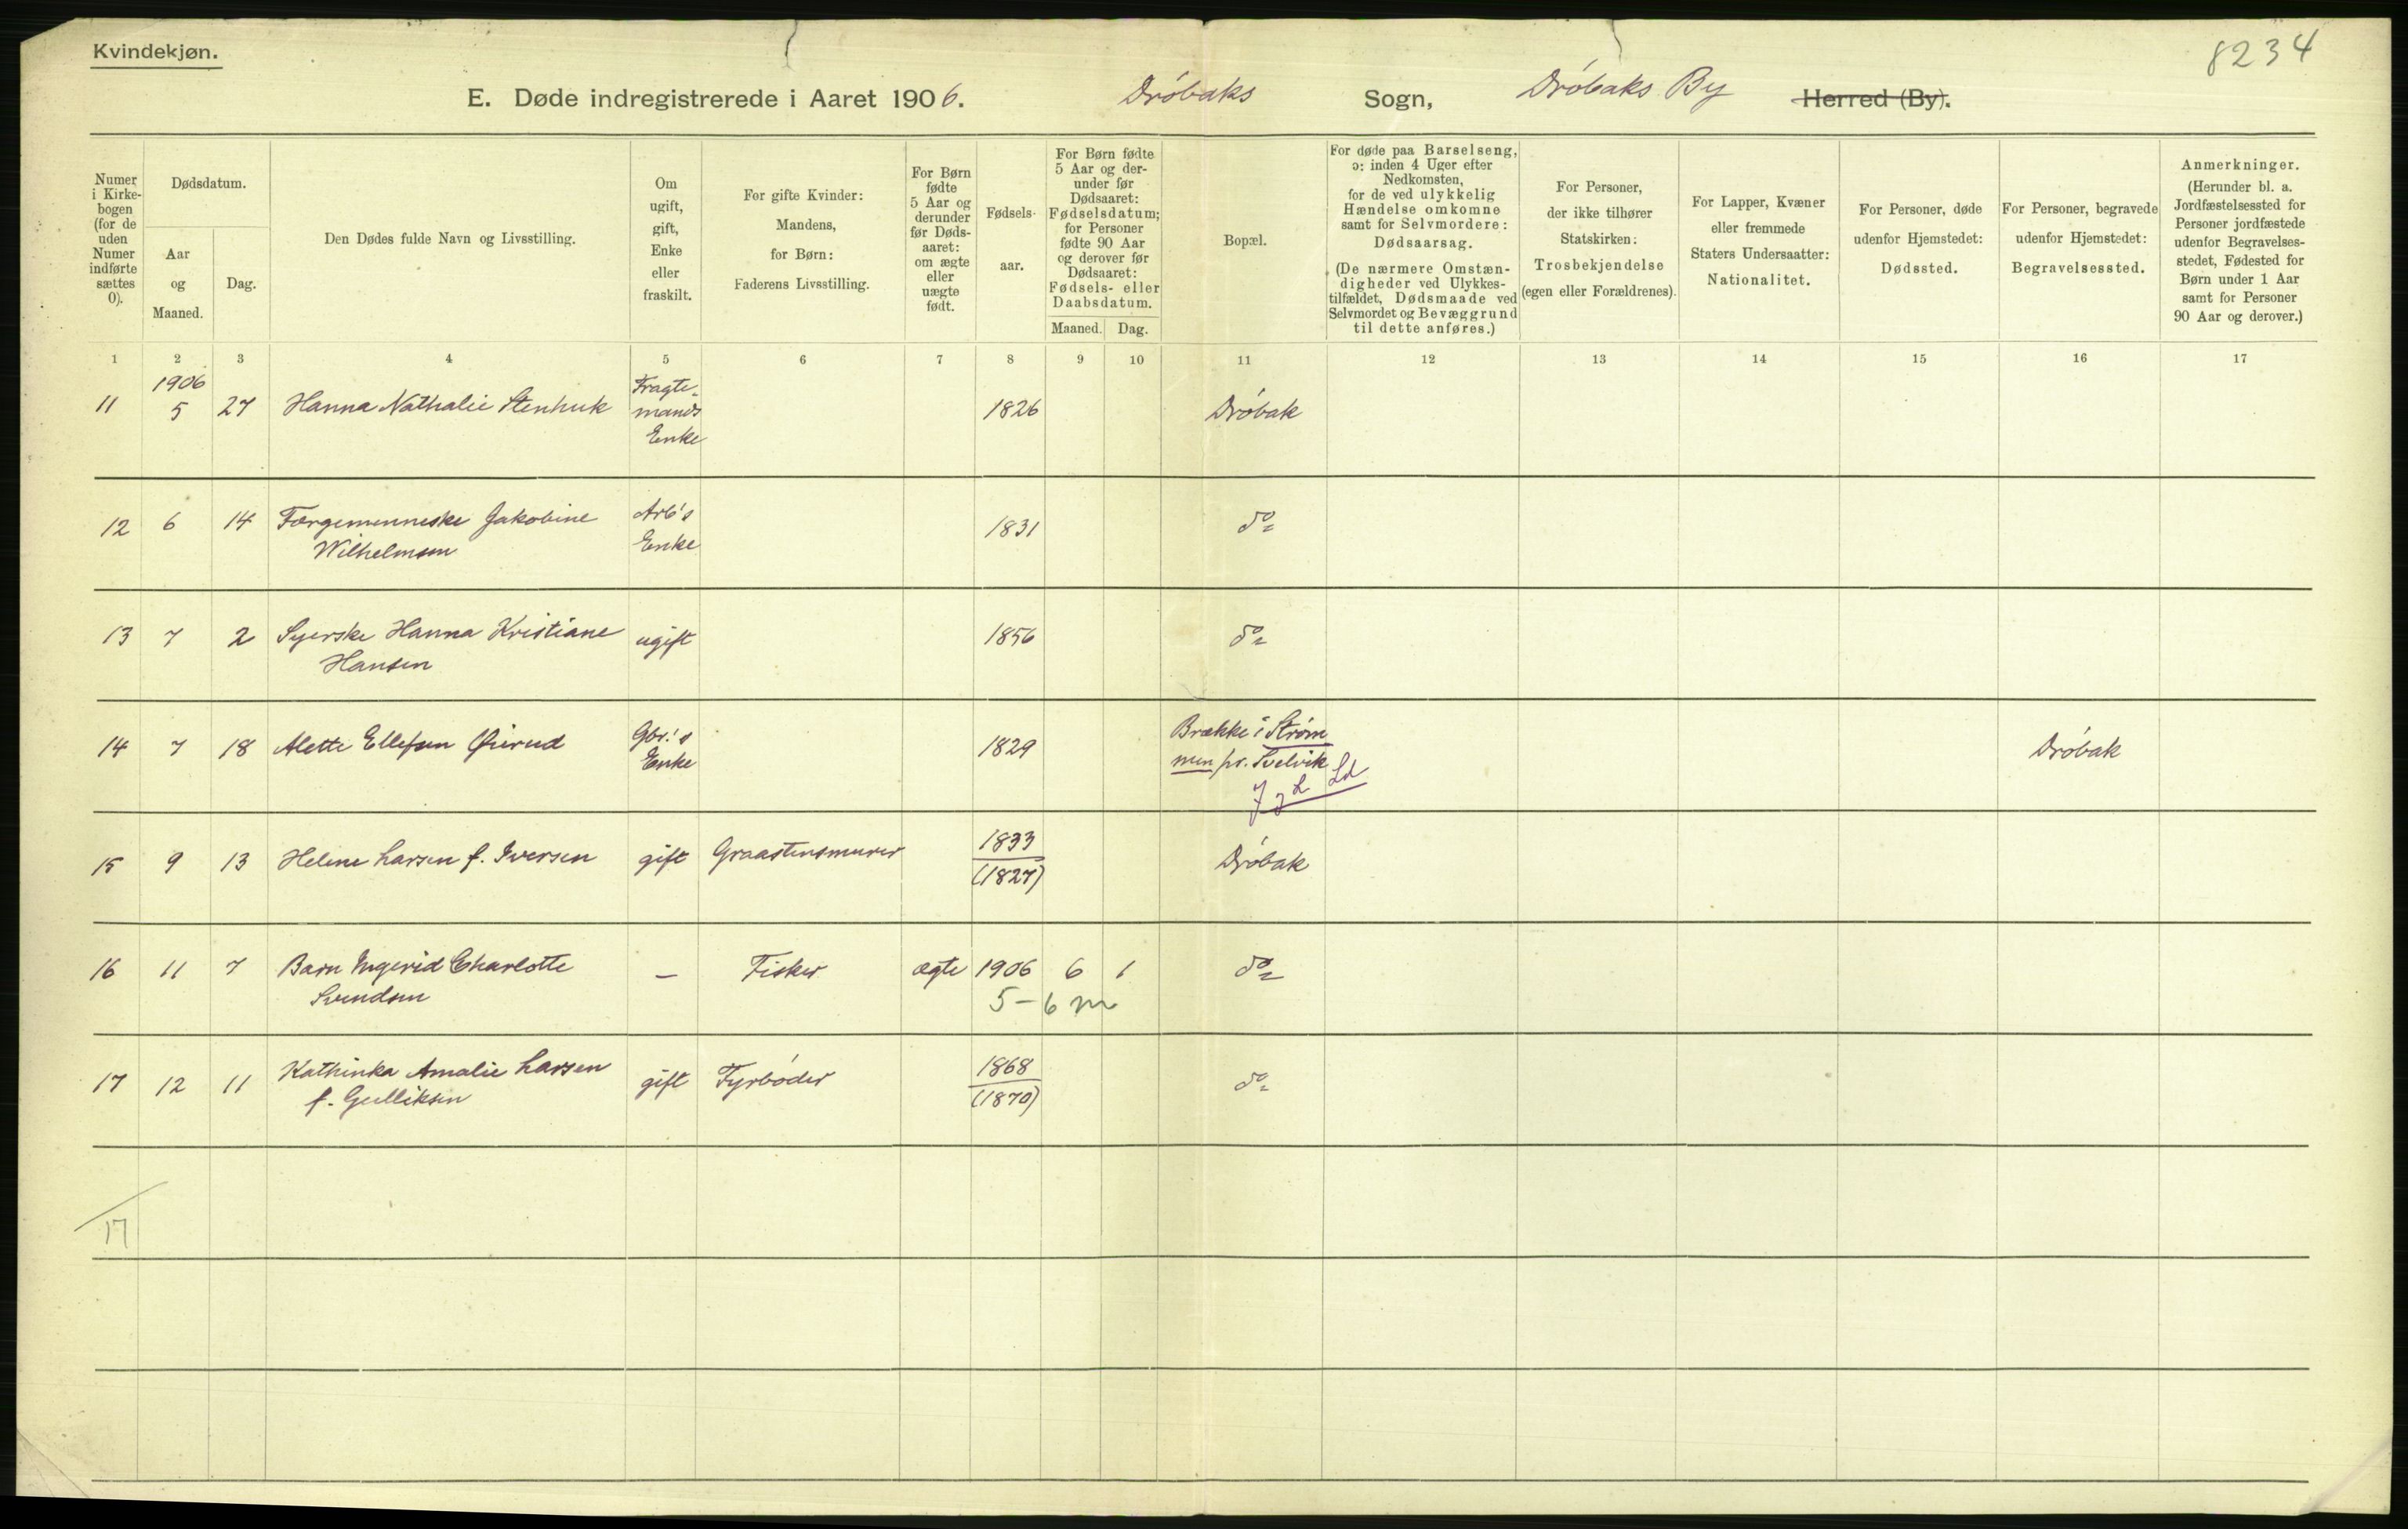 Kvindekjøn.
8234
E. Døde indregistrerede i Aaret 1906. Dröbaks Sogn, Dröbaks By Herred (By).
Numer i Kirke-bogen (for de uden Numer indførte sættes 0).
Dødsdatum.
Aar og Maaned.
Dag.
Den Dødes fulde Navn og Livsstilling.
Om ugift, gift, Enke eller fraskilt.
For gifte Kvinder: Mandens, for Børn: Faderens Livsstilling.
For Børn fødte 5 Aar og derunder før Døds-aaret: om ægte eller uægte født.
Fødsels-aar.
For Børn fødte 5 Aar og der-under før Dødsaaret: Fødselsdatum; for Personer fødte 90 Aar og derover før Dødsaaret: Fødsels- eller Daabsdatum.
Maaned. Dag.
Bopæl.
For døde paa Barselseng, ɔ: inden 4 Uger efter Nedkomsten, for de ved ulykkelig Hændelse omkomne samt for Selvmordere: Dødsaarsag. (De nærmere Omstæn-digheder ved Ulykkes-tilfældet, Dødsmaade ved Selvmordet og Bevæggrund til dette anføres.)
For Personer, der ikke tilhører Statskirken: Trosbekjendelse (egen eller Forældrenes).
For Lapper, Kvæner eller fremmede Staters Undersaatter: Nationalitet.
For Personer, døde udenfor Hjemstedet: Dødssted.
For Personer, begravede udenfor Hjemstedet: Begravelsessted.
Anmerkninger. (Herunder bl. a. Jordfæstelsessted for Personer jordfæstede udenfor Begravelses-stedet, Fødested for Børn under 1 Aar samt for Personer 90 Aar og derover.)
1 2 3 4 5 6 7 8 9 10 11 12 13 14 15 16 17
1906 Fragte-
11 5 27 Hanna Nathalie Stenhuk mands 1826 Dröbak
Enke
12 6 14 Færgemenneske Jakobine Arb's 1831 do
Wilhelmsen Enke
13 7 2 Syerske Hanna Kristiane ugift 1856 do
Hansen
14 7 18 Alette Ellefsen Øierud Gbr.'s 1829 Brække i Strøm Dröbak
Enke men pr. Svelvik
15 9 13 Helene Larsen f. Iversen gift Graastensmurer 1833 Dröbak
(1827)
16 11 7 Barn Ingerid Charlotte — Fisker ægte 1906 6 1 do
Svendsen 5-6 m
17 12 11 Kathinka Amalie Larsen gift Fyrböder 1868 do
f. Gulliksen (1870)
17